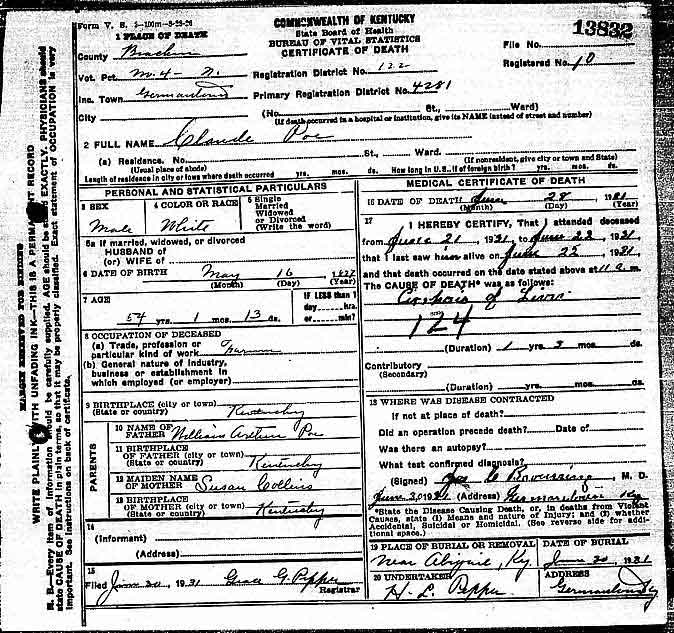 Form V. S. 1-100m-8-25-26
COMMONWEALTH OF KENTUCKY
State Board of Health
BUREAU OF VITAL STATISTICS
CERTIFICATE OF DEATH
13832
File No.
Registered No. 10
1 PLACE OF DEATH
County Bracken
Vot. Pct. No. 4 - N.
Registration District No. 122
Inc. Town Germantown
Primary Registration District No. 4281
City
(No. St., Ward)
(If death occurred in a hospital or institution, give its NAME instead of street and number)
2 FULL NAME Claude Poe
(a) Residence. No. St., Ward.
(Usual place of abode) (If nonresident, give city or town and State)
Length of residence in city or town where death occurred yrs. mos. ds. How long in U.S., if of foreign birth? yrs. mos. ds.
PERSONAL AND STATISTICAL PARTICULARS
3 SEX
Male
4 COLOR OR RACE
White
5 Single
Married
Widowed
or Divorced
(Write the word)
5a If married, widowed, or divorced
HUSBAND of
(or) WIFE of
6 DATE OF BIRTH May 16 1877
(Month) (Day) (Year)
7 AGE
54 yrs. 1 mos. 13 ds.
IF LESS than 1
day hrs.
or min?
8 OCCUPATION OF DECEASED
(a) Trade, profession or
particular kind of work Farmer
(b) General nature of industry,
business or establishment in
which employed (or employer)
9 BIRTHPLACE (city or town)
(State or country) Kentucky
PARENTS
10 NAME OF
FATHER William Arthur Poe
11 BIRTHPLACE
OF FATHER (city or town)
(State or country) Kentucky
12 MAIDEN NAME
OF MOTHER Susan Collins
13 BIRTHPLACE
OF MOTHER (city or town)
(State or country) Kentucky
14
(Informant)
(Address)
15
Filed June 30, 1931 Grace G. Pepper
Registrar
MEDICAL CERTIFICATE OF DEATH
16 DATE OF DEATH June 28 1931
(Month) (Day) (Year)
17
I HEREBY CERTIFY, That I attended deceased
from June 21, 1931, to June 22, 1931,
that I last saw him alive on June 22, 1931
and that death occurred on the date stated above at 11 a. m.
The CAUSE OF DEATH* was as follows:
of Liver
124
(Duration) 1 yrs. 3 mos. ds.
Contributory
(Secondary)
(Duration) yrs. mos. ds.
18 WHERE WAS DISEASE CONTRACTED
If not at place of death?
Did an operation precede death? Date of
Was there an autopsy?
What test confirmed diagnosis?
(Signed) M. D.
June 31, 1931 (Address) Germantown Ky
*State the Disease Causing Death, or, in deaths from Violent
Causes, state (1) Means and nature of Injury; and (2) whether
Accidental, Suicidal or Homicidal. (See reverse side for addi-
tional space.)
19 PLACE OF BURIAL OR REMOVAL
Near Abigail, Ky.
DATE OF BURIAL
June 30, 1931
20 UNDERTAKER
H. L. Pepper
ADDRESS
Germantown Ky
MARGIN RESERVED FOR BINDING
WRITE PLAINLY WITH UNFADING INK—THIS IS A PERMANENT RECORD
N. B.—Every item of information should be carefully supplied. AGE should be stated EXACTLY. PHYSICIANS should
state CAUSE OF DEATH in plain terms, so that it may be properly classified. Exact statement of OCCUPATION is very
important. See instructions on back of certificate.